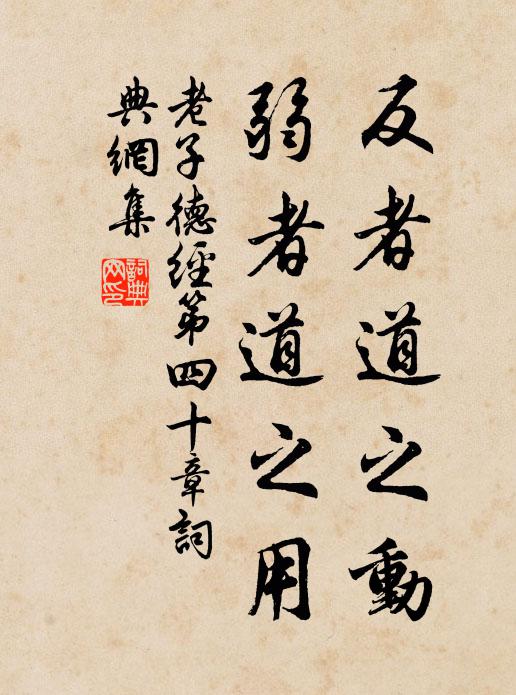 反者道之動
弱者道之用
老子德經第四十章詞
典網集
詞典
网印